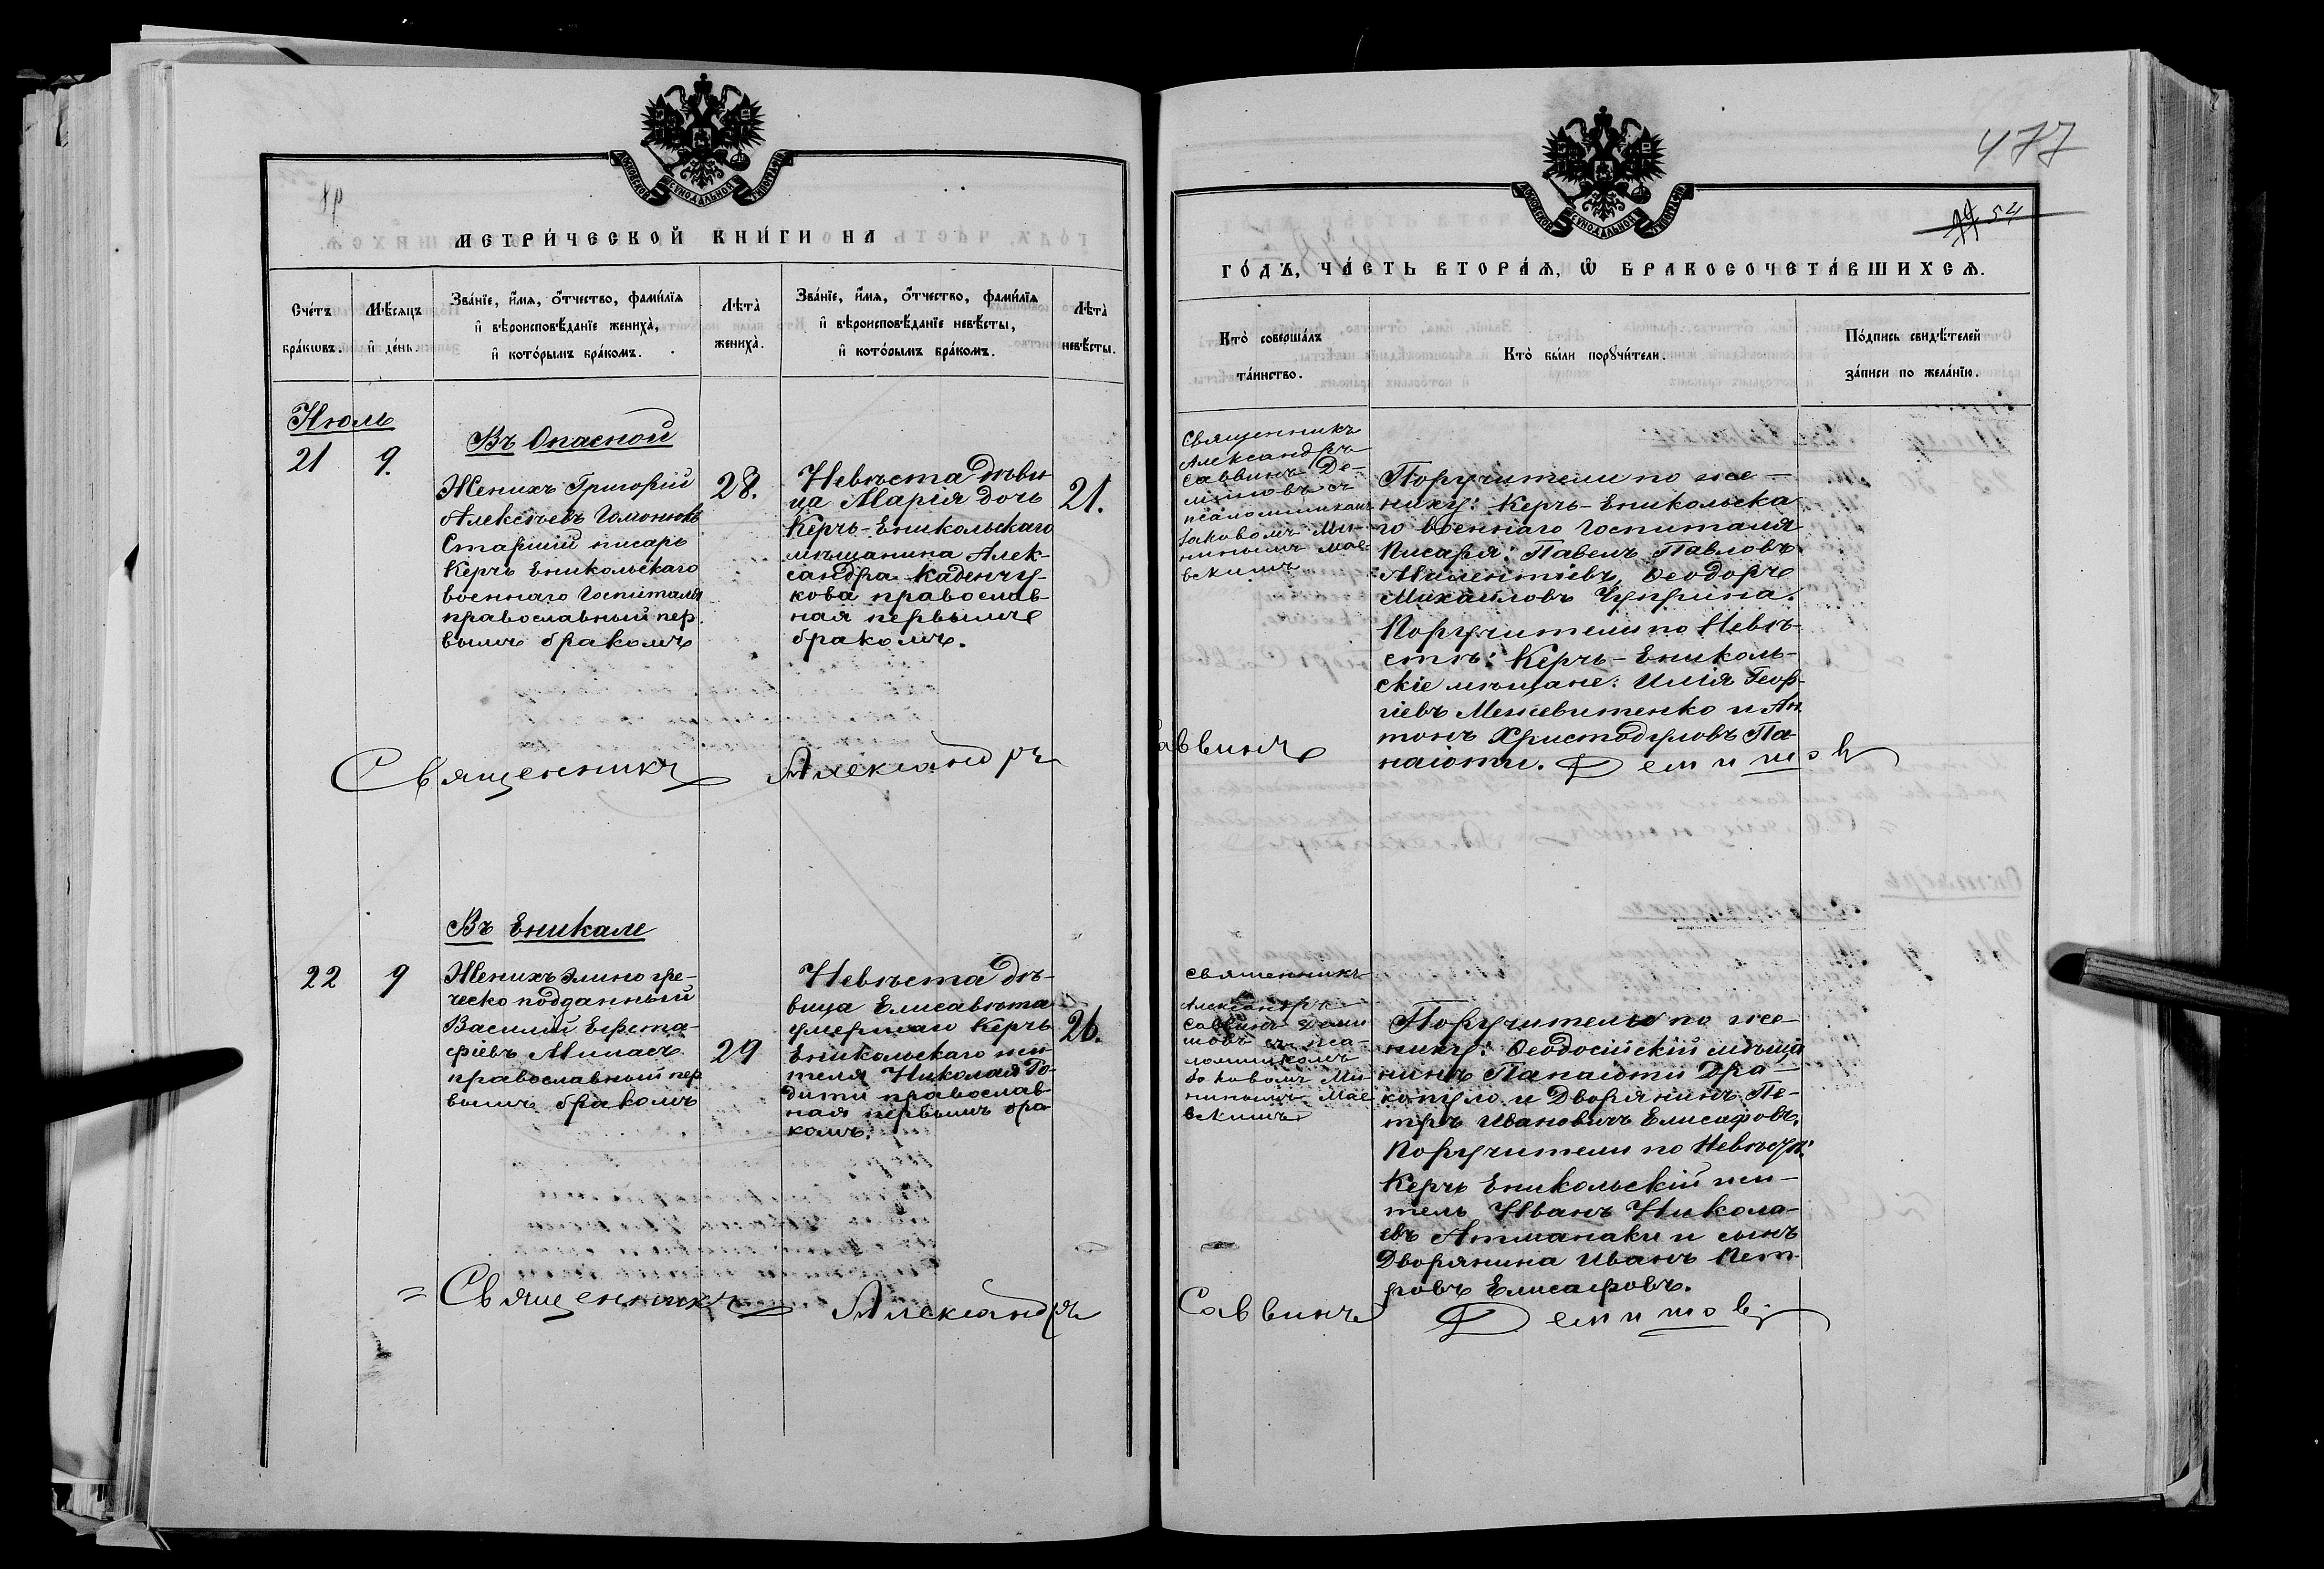 МОСКОВСКОЙ СѴНОДАЛЬНОЙ ТИПОГРАФІИ
МЕТРИ́ЧЕСКОЙ КНИ́ГИ НА
Сче́тъ
бра́кωвъ.
Мѣ́сяцъ
и҆ де́нь.
Зва́нїе, и҆́мѧ, ѻ҆́тчество, фами́лїѧ
и҆ вѣроисповѣ́данїе жениха̀,
и҆ кото́рымъ бра́комъ.
Лѣ́та̀
жениха̀.
Зва́нїе, и҆́мѧ, ѻ҆́тчество, фами́лїѧ
и҆ вѣроисповѣ́данїе невѣ́сты,
и҆ кото́рымъ бра́комъ.
Лѣ́та̀
невѣ́сты.
Июль
21
9.
Въ Опасной
Женихъ Григорій
Алексѣевъ Гомонюкъ
Старшій писарь
Керчь Еникольскаго
военнаго Госпиталя
православный пер
вымъ бракомъ
28.
Невѣста дѣви
ца Марія дочь
Керчь-Еникольскаго
мѣщанина Алек-
сандра Каденчу-
кова православ-
ная первымъ
бракомъ.
21.
Священникъ Александръ
Въ Еникале
22
9
Женихъ Элино гре-
ческо подданный
Василій Евста-
фіевъ Милась
православный пер
вымъ бракомъ
29
Невѣста дѣ-
вица Елисавѣта
умершаго Керчь
Еникольскаго жи
теля Николая Го-
дити православ-
ная первымъ бра
комъ.
26.
Священникъ Александръ
477
54
МОСКОВСКОЙ СѴНОДАЛЬНОЙ ТИПОГРАФІИ
ГО́ДЪ, ЧА́СТЬ ВТОРА́Ѧ, Ѡ҆ БРАКОСОЧЕТА́ВШИХСѦ.
Кто̀ соверша́лъ
та́инство.
Кто̀ бы́ли порꙋчи́тели.
По́дпись свидѣ́телей
за́писи по жела́нїю.
Священникъ
Александръ
Саввинъ Де-
митовъ съ
псаломщикомъ
Іаковомъ Ми-
нинымъ Мае-
вскимъ
Поручители по же-
ниху: Керчь-Еникольска
го военнаго Госпиталя
Писаря: Павелъ Павловъ
Милентіевъ, Ѳеодоръ
Михаиловъ Чуприна.
Поручители по Невѣ-
стѣ: Керчь-Ениколь-
скіе мѣщане: Илія Геор-
гіевъ Межевитенко и Ан
тонъ Христодуловъ Па-
наіоти.
Саввинъ Демитовъ
Священникъ
Александръ
Саввинъ Деми
товъ съ пса-
ломщикомъ
Іаковомъ Ми-
нинымъ Мае
вскимъ
Поручители по же-
ниху: Ѳеодосійскій мѣща
нинъ Панаіоти Дра-
копуло и Дворянинъ Пе-
тръ Ивановичъ Елисафовъ.
Поручители по Невѣстѣ:
Керчь Еникольскій жи-
тель Иванъ Никола-
евъ Атманаки и сынъ
Дворянина Иванъ Пет-
ровъ Елисафовъ.
Саввинъ Демитовъ